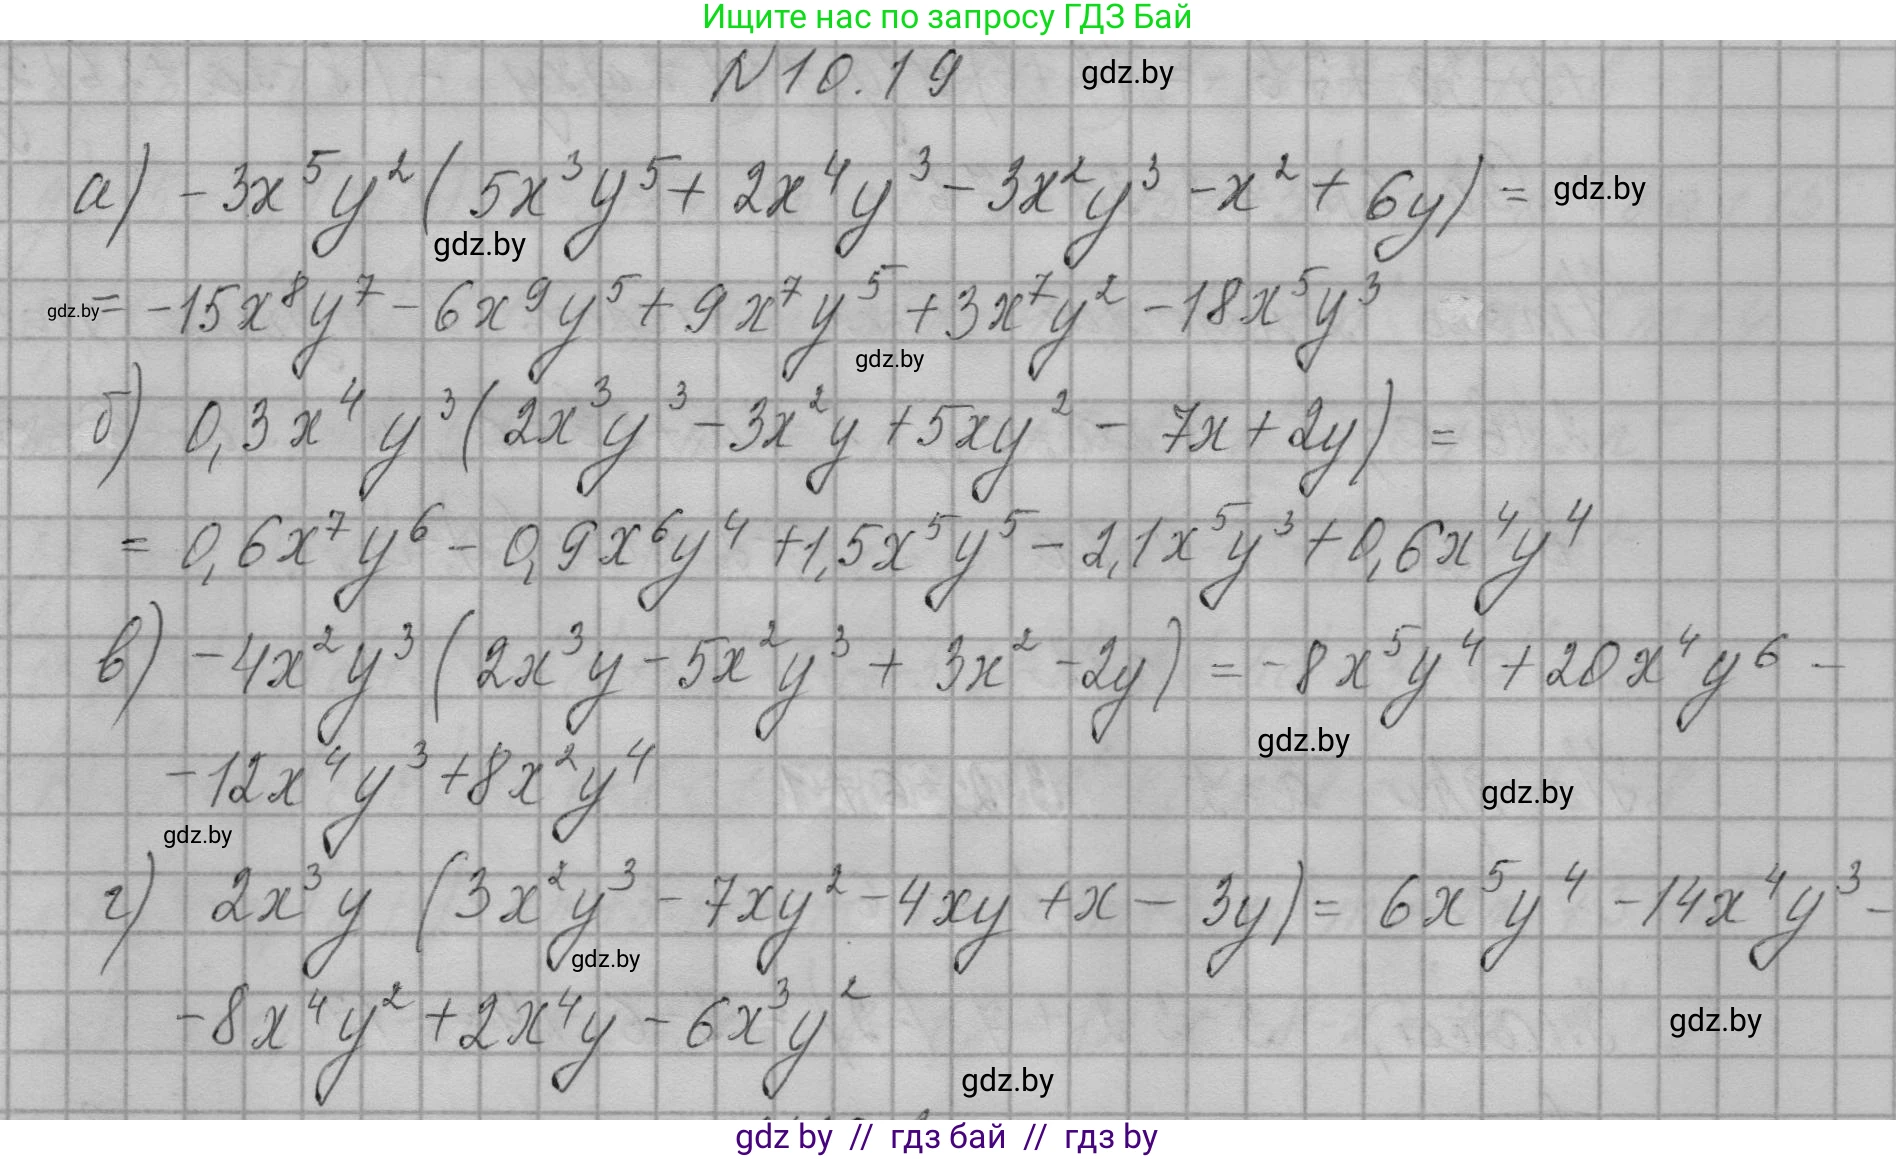 Ищите нас по запросу ГДЗ Бай
N 10.19 gdz.by
а) -3x⁵y²(5x³y⁵ + 2x⁴y³ - 3x²y³ - x² + 6y) = gdz.by
gdz.by
gdz.by = -15x⁸y⁷ - 6x⁹y⁵ + 9x⁷y⁵ + 3x⁷y² - 18x⁵y³
gdz.by
б) 0,3x⁴y³(2x³y³ - 3x²y + 5xy² - 7x + 2y) =
= 0,6x⁷y⁶ - 0,9x⁶y⁴ + 1,5x⁵y⁵ - 2,1x⁵y³ + 0,6x⁴y⁴
в) -4x²y³(2x³y - 5x²y³ + 3x² - 2y) = -8x⁵y⁴ + 20x⁴y⁶ -
gdz.by
-12x⁴y³ + 8x²y⁴
gdz.by
gdz.by
г) 2x³y (3x²y³ - 7xy² - 4xy + x - 3y) = 6x⁵y⁴ - 14x⁴y³ -
gdz.by
-8x⁴y² + 2x⁴y - 6x³y²
gdz.by
gdz.by
gdz by // гдз бай // гдз by